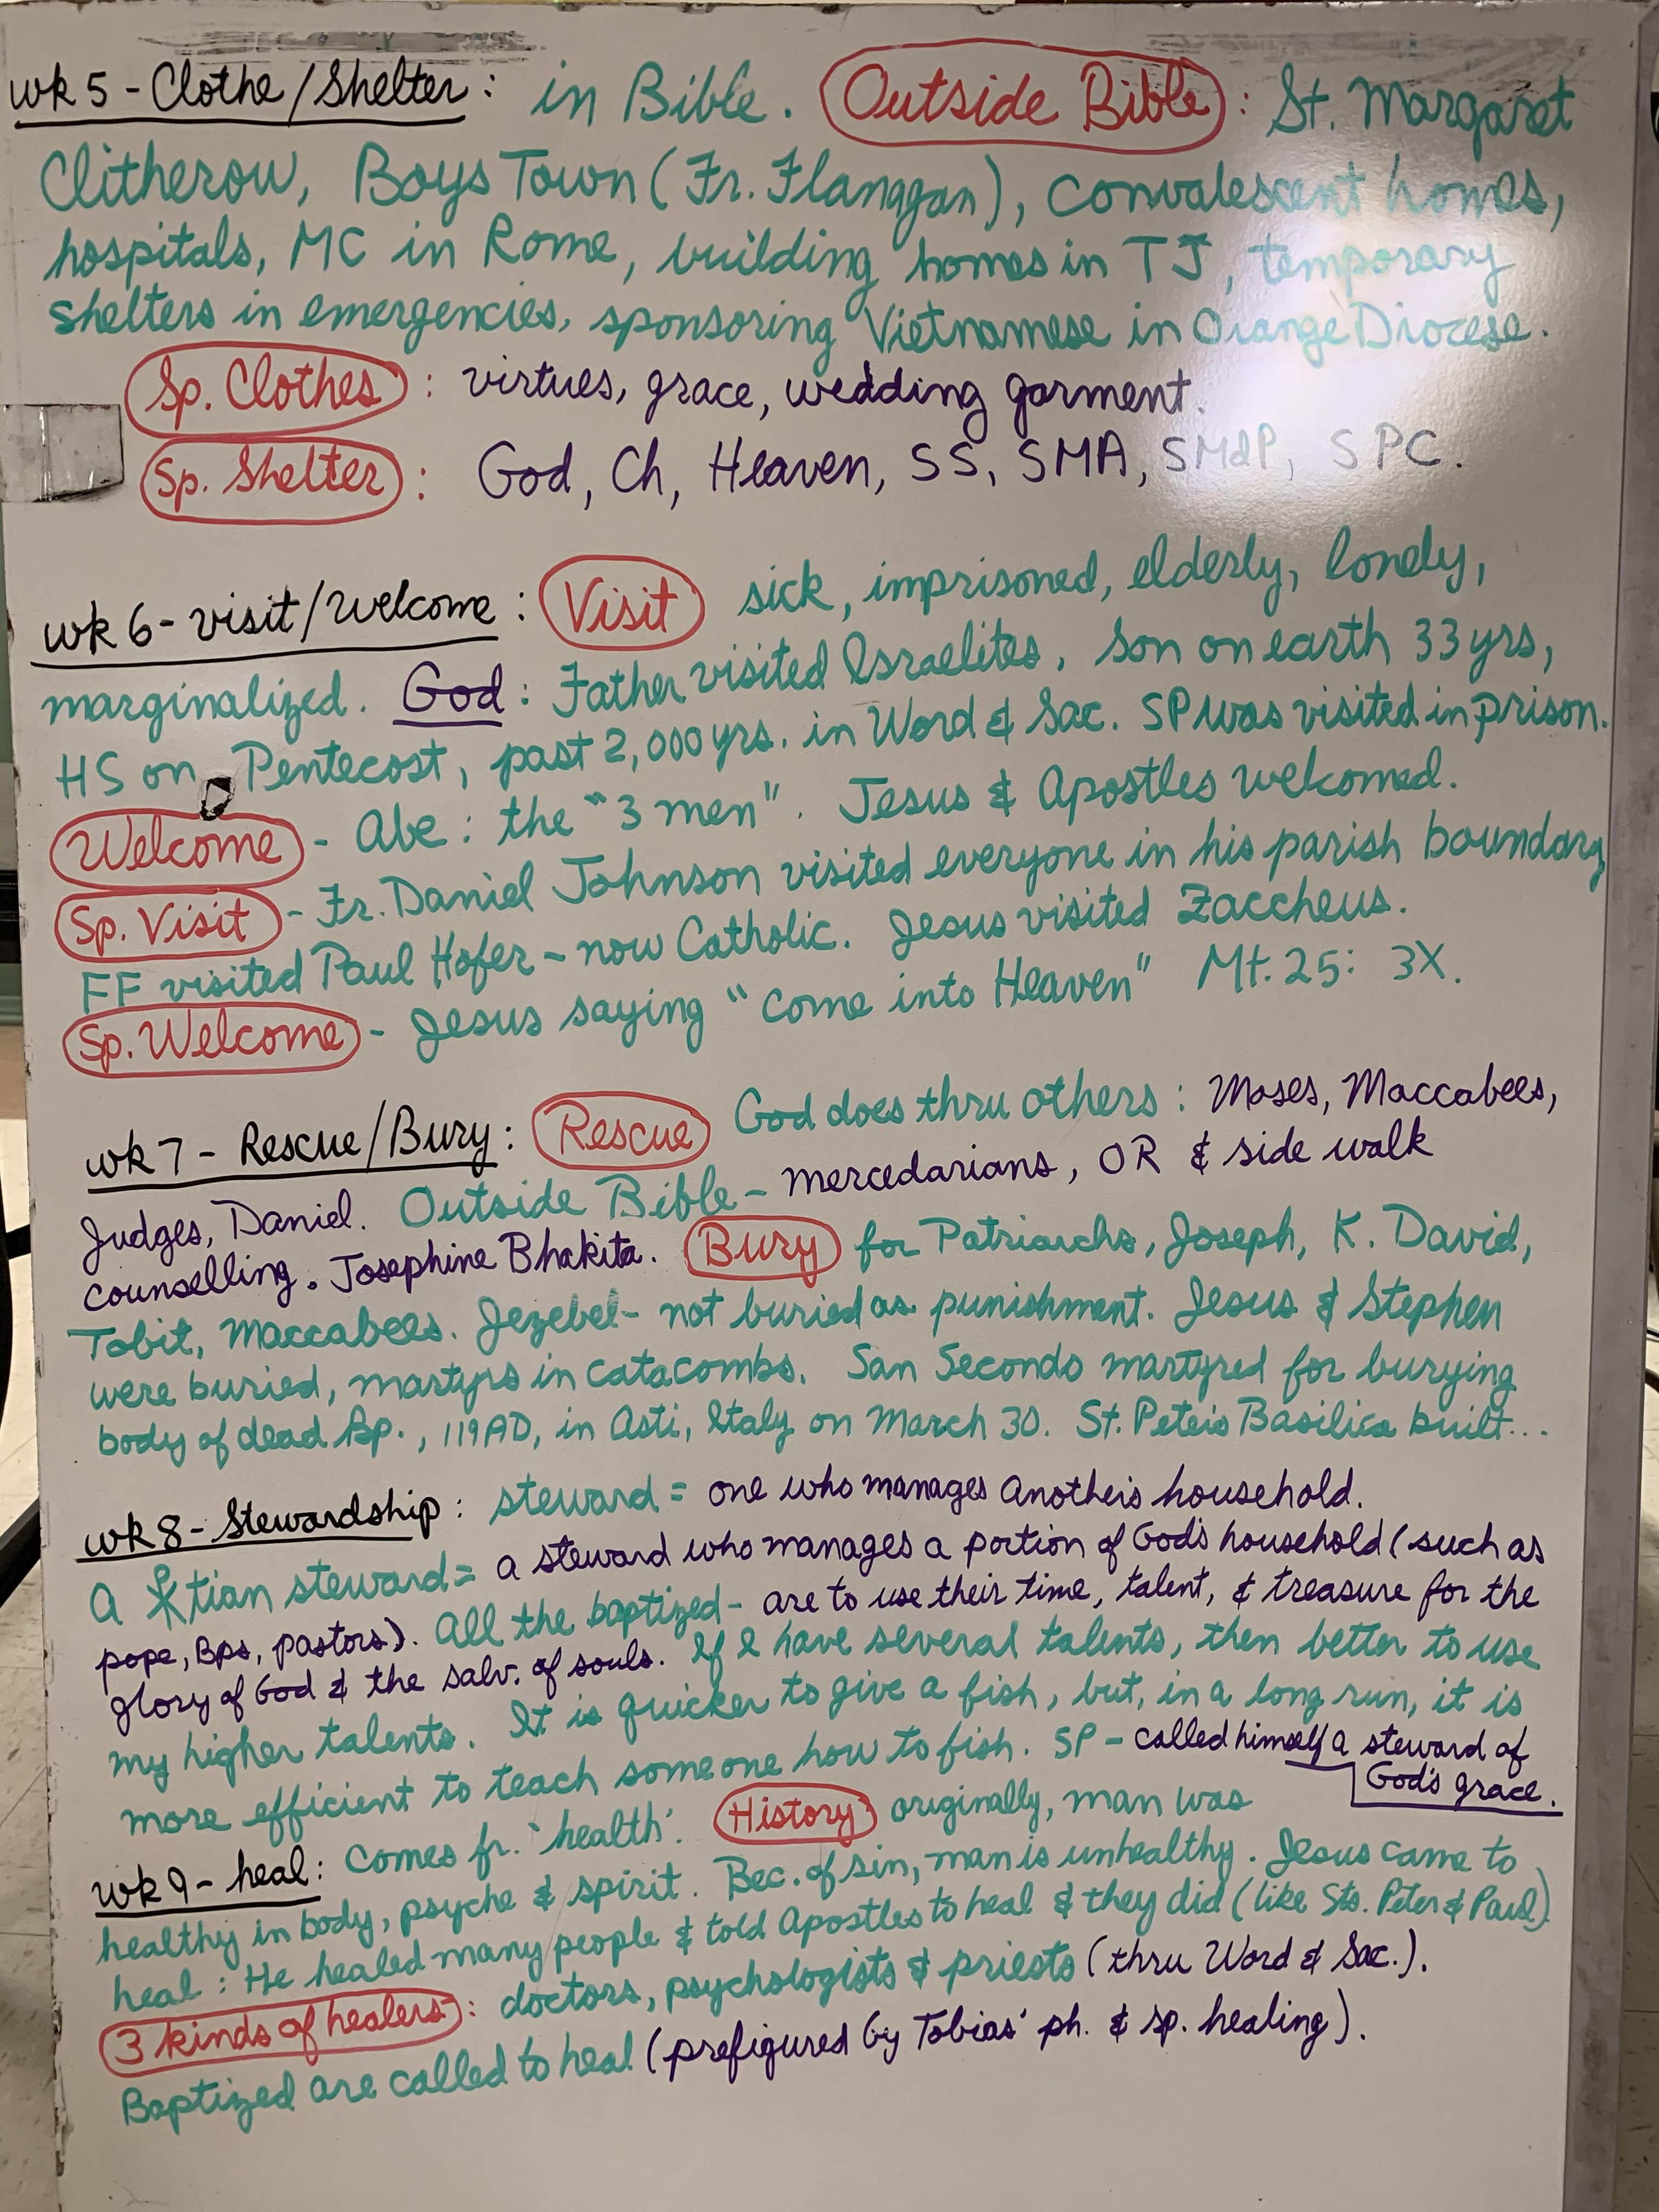 wk 5 - Clothe/Shelter: in Bible. Outside Bible: St. Margaret
Clitherow, Boys Town (Fr. Flanagan), convalescent homes,
hospitals, MC in Rome, building homes in TJ, temporary
shelters in emergencies, sponsoring Vietnamese in Orange Diocese.
Sp. Clothes: virtues, grace, wedding garment.
Sp. Shelter: God, Ch, Heaven, SS, SMA, SMdP, SPC.
wk 6 - visit/welcome: Visit sick, imprisoned, elderly, lonely,
marginalized. God: Father visited Israelites, Son on earth 33 yrs,
HS on Pentecost, past 2,000 yrs. in Word & Sac. SP was visited in prison.
Welcome - Abe: the "3 men". Jesus & Apostles welcomed.
Sp. Visit - Fr. Daniel Johnson visited everyone in his parish boundary
FF visited Paul Hofer - now Catholic. Jesus visited Zaccheus.
Sp. Welcome - Jesus saying "come into Heaven" Mt. 25: 3X.
wk 7 - Rescue/Bury: Rescue God does thru others: Moses, Maccabees,
Judges, Daniel. Outside Bible - mercedarians, OR & side walk
counselling. Josephine Bhakita. Bury for Patriarchs, Joseph, K. David,
Tobit, Maccabees. Jezebel - not buried as punishment. Jesus & Stephen
were buried, martyrs in catacombs. San Secondo martyred for burying
body of dead Bp., 119 AD, in Asti, Italy on March 30. St. Peter's Basilica built...
wk 8 - Stewardship: steward = one who manages another's household.
A Xtian steward = a steward who manages a portion of God's household (such as
pope, Bps, pastors). All the baptized - are to use their time, talent, & treasure for the
glory of God & the salv. of souls. If I have several talents, then better to use
my higher talents. It is quicker to give a fish, but, in a long run, it is
more efficient to teach someone how to fish. SP - called himself a steward of
God's grace.
wk 9 - heal: Comes fr. 'health'. History originally, man was
healthy in body, psyche & spirit. Bec. of sin, man is unhealthy. Jesus came to
heal: He healed many people & told Apostles to heal & they did (like Sts. Peter & Paul)
3 kinds of healers: doctors, psychologists & priests (thru Word & Sac.).
Baptized are called to heal (prefigured by Tobias' ph. & sp. healing).